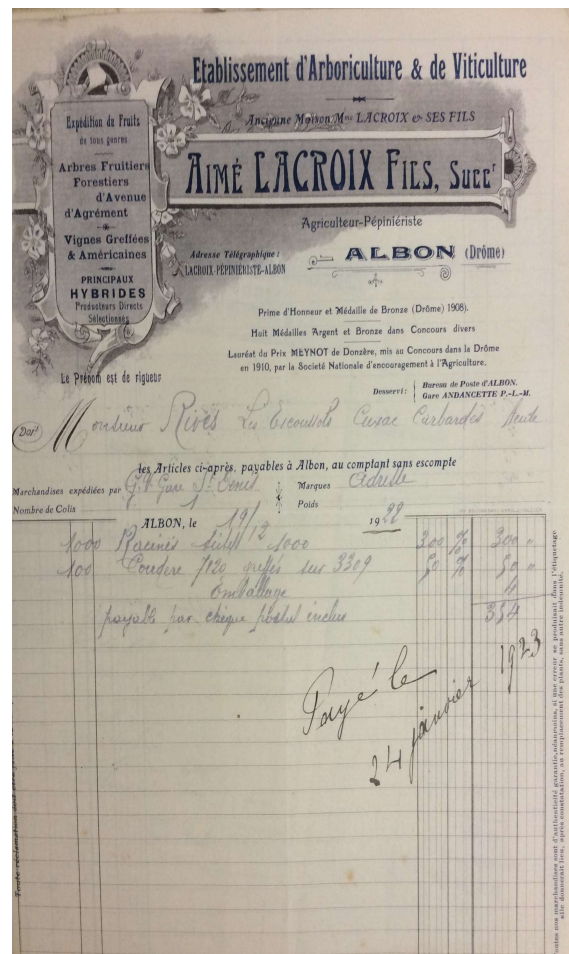 Etablissement d'Arboriculture & de Viticulture
Ancienne Maison Mme LACROIX & SES FILS
AIMÉ LACROIX FILS, Succr
Agriculteur-Pépiniériste
Adresse Télégraphique :
LACROIX-PÉPINIÉRISTE-ALBON
ALBON (Drôme)
Expédition de Fruits
de tous genres
Arbres Fruitiers
Forestiers
d'Avenue
d'Agrément
Vignes Greffées
& Américaines
PRINCIPAUX
HYBRIDES
Producteurs Directs
Sélectionnés
Le Prénom est de rigueur
Prime d'Honneur et Médaille de Bronze (Drôme) 1908).
Huit Médailles Argent et Bronze dans Concours divers
Lauréat du Prix MEYNOT de Donzère, mis au Concours dans la Drôme
en 1910, par la Societé Nationale d'encouragement à l'Agriculture.
Desservi : Bureau de Poste d'ALBON.
Gare ANDANCETTE P.-L.-M.
Doit Monsieur Rives Les Escoussols Cuxac Cabardès Aude
les Articles ci-après, payables à Albon, au comptant sans escompte
Marchandises expédiées par G.V. Gare St Denis Marques Adresse
Nombre de Colis 1 Poids
ALBON, le 19/12 1922
1000 Racinés 1000 300 % 300 "
100 Couderc 7120 greffés sur 3309 50 % 50 "
Emballage 4
354
payable par chèque postal inclus
Payé le
24 janvier 1923
Toute réclamation doit être
Toutes nos marchandises sont d'authenticité garantie, néanmoins, si une erreur se produisait dans l'étiquetage
elle donnerait lieu, après constatation, au remplacement des plants, sans autre indemnité.